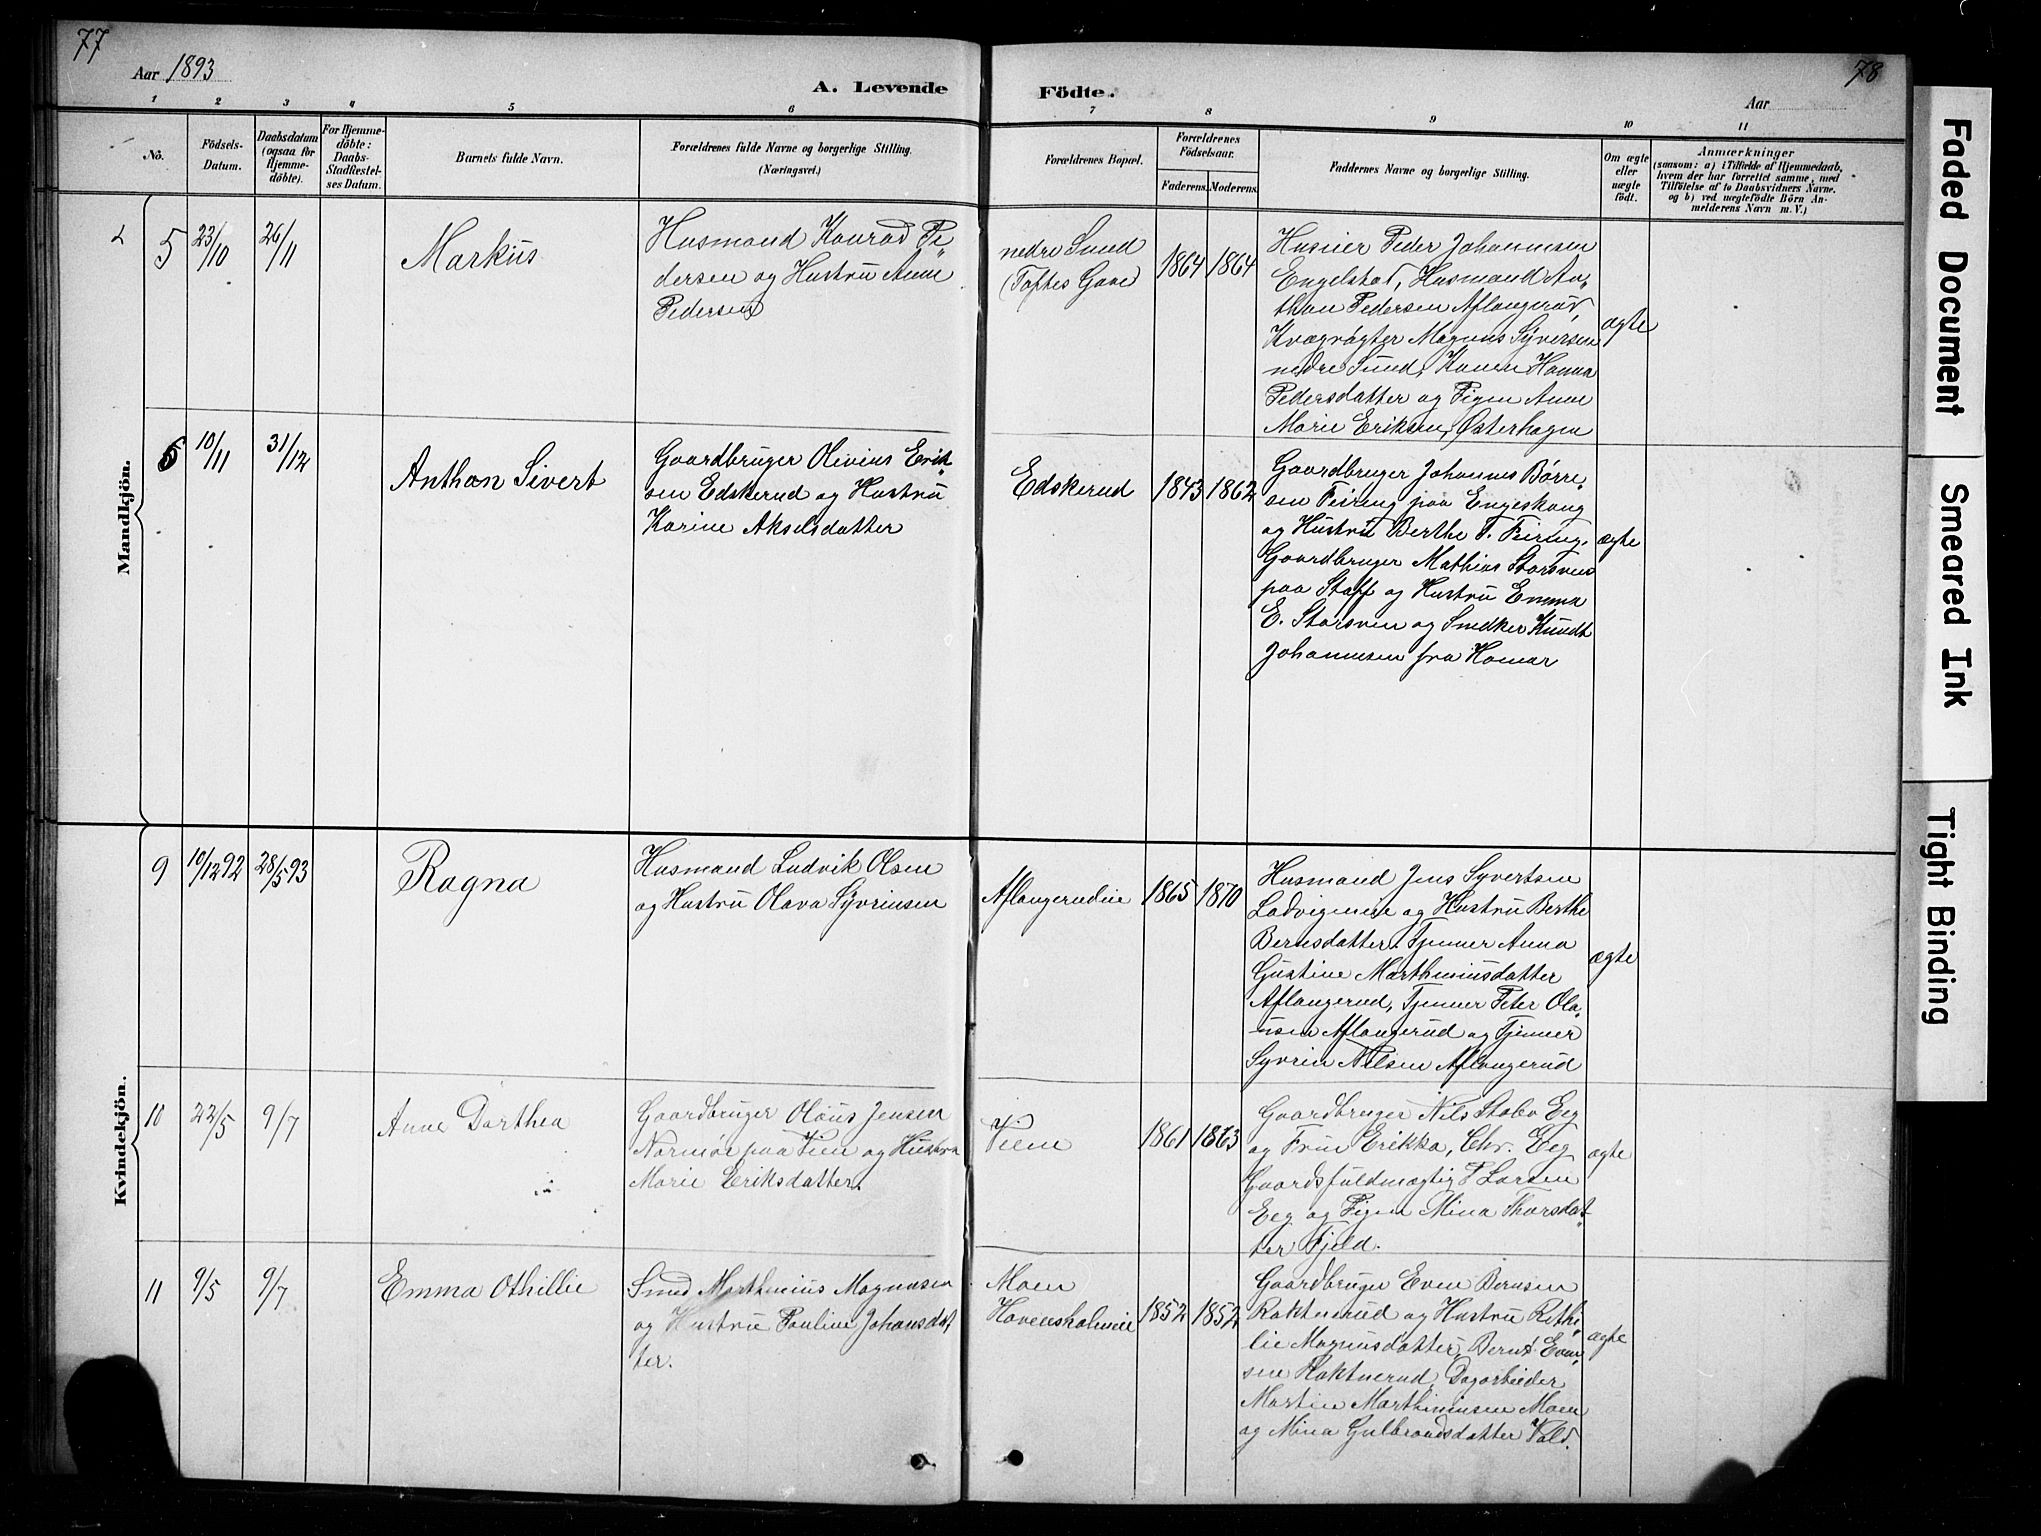 77
Aar 1893
A. Levende
Födte.
Aar
78
1 2 3 4 5 6 7 8 9 10 11
No.
Födsels-
Datum.
Daabsdatum
(ogsaa for
Hjemme-
döbte).
For Hjemme-
döbte:
Daabs-
Stadfæstel-
ses Datum.
Barnets fulde Navn.
Forældrenes fulde Navne og borgerlige Stilling.
(Næringsvei.)
Forældrenes Bopæl.
Forældrenes
Födselsaar.
Faderens.
Moderens.
Faddernes Navne og borgerlige Stilling.
Om ægte
eller
uægte
födt.
Anmærkninger
(saasom: a) i Tilfælde af Hjemmedaab,
hvem der har forrettet samme, med
Tilföielse af to Daabsvidners Navne,
og b) ved uægtefödte Börn An-
melderens Navn m. V.)
Mandkjön.
5
23/10
26/11
Markus
Husmand Konrad Pe„
dersen og Hustru Anne
Pedersen
nedre Sund
(Toftes Gave)
1864
1864
Huseier Peder Johannesen
Engelstad, Husmand An„
than Pedersen Aflangerud,
Kvægrøgter Magnus Syversen
nedre Sund, Konen Hanna
Pedersdatter og Pigen Anne
Marie Eriksen, Østerhagen
ægte
6
10/11
31/12
Anthon Sivert
Gaardbruger Olivius Erik„
sen Edskerud og Hustru
Karine Akselsdatter
Edskerud
1843
1862
Gaardbruger Johannes Børre„
sen Feiring paa Engeskaug
og Hustru Berthe T. Feiring.
Gaardbruger Mathias Storsveen
paa Staff og Hustru Emma
E. Storsveen og Snedker Knudt
Johannesen fra Hamar
ægte
Kvindekjön.
9
10/12 92
28/5 93
Ragna
Husmand Ludvik Olsen
og Hustru Olava Syvrinsen
Aflangerudeie
1865
1870
Husmand Jens Syvertsen
Ladvigeneie og Hustru Berthe
Berntsdatter, Tjener Anna
Gustine Marthiniusdatter
Aflangerud, Tjener Peter Ola„
usen Aflangerud og Tjener
Syvrin Nilsen Aflangerud
ægte
10
22/5
9/7
Anne Dorthea
Gaardbruger Olaus Jensen
Normør paa Vien og Hustru
Marie Eriksdatter.
Vien
1861
1863
Gaardbruger Nils Stabo Eeg
og Frue Erikka, Chr. Eeg
Gaardsfuldmægtig P Larsen
Eeg og Pigen Mina Thorsdat„
ter Fjeld.
ægte
11
9/5
9/7
Emma Othillie
Smed Marthinius Magnusen
og Hustru Pauline Johansdat
ter.
Moen
Hovensholmeie
1852
1852
Gaardbruger Even Berntsen
Roknerud og Hustru
Magnusdatter, Bernt Even„
sen Dagarbeider
Martin Marthiniusen Moen
og Mina Gulbrandsdatter Vold.
ægte
Faded Document
Smeared Ink
Tight Binding